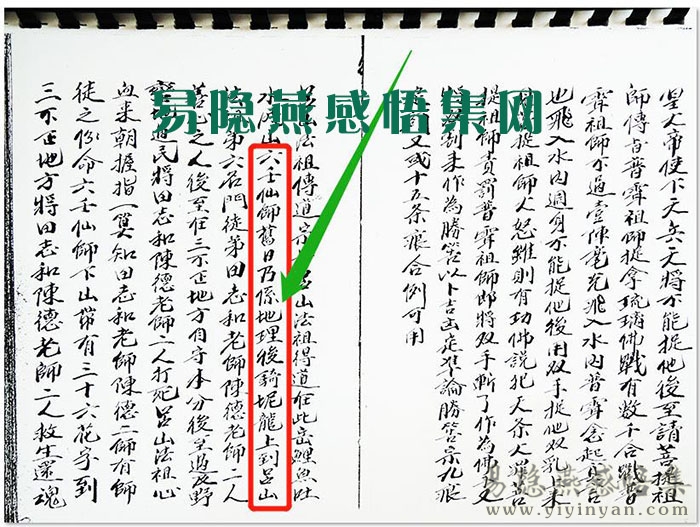 易隐燕感悟集网
皇人帝使下天六天將亦不能捉他後至請菩提祖
師傅与普霽祖師捉拿琉璃佛戰有数千合戰普
霽祖師不過壹陣毫光飛入水內普霽念起真言
也飛入水內週身亦能捉他後用双手捉他双乳上來
捉祖師人怒雖則有功佛說犯天条人罪菩
提祖師責罰普霽祖師即將双手斬了作為佛父
創来作為勝筶以下吉凶定準論勝筶宗九痕
為訂又或十五条痕合例可用
呂山法祖傳道宗呂山法祖得道在此岳鯉魚吐
水浮出六壬仙師舊日乃係地理後騎坭龍上到呂山
法第六名門徒弟田志和老師陳德老師二人
善心之人後至在三不正地方自守本分後至遇民野
蠻地民將田志和陳德老師二人打死呂山法祖心
血来朝握指一算知田志和老師陳德二師有師
徒之份命六壬仙師下山帶有三十六花字到
三不正地方將田志和陳德老師二人救生還魂
易隐燕感悟集
www.yiyinyan.com